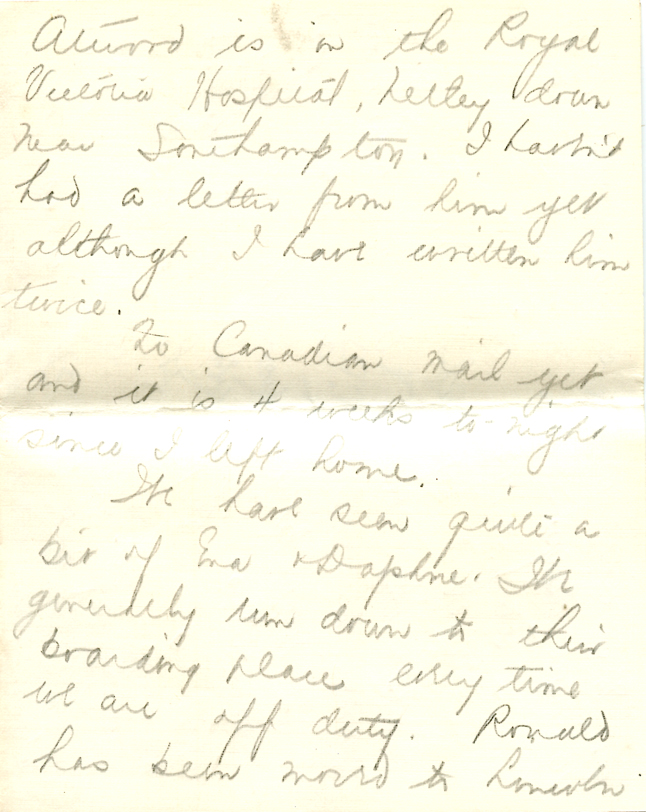 Atwood is in the Royal
Victoria Hospital, Netley down
near Southampton. I havn't
had a letter from him yet
although I have written him
twice.
No Canadian mail yet
and it is 4 weeks to-night
since I left home.
We have seen quite a
bit of Ena & Daphne. We
generally run down to their
boarding place every time
we are off duty. Ronald
has been moved to Lincoln